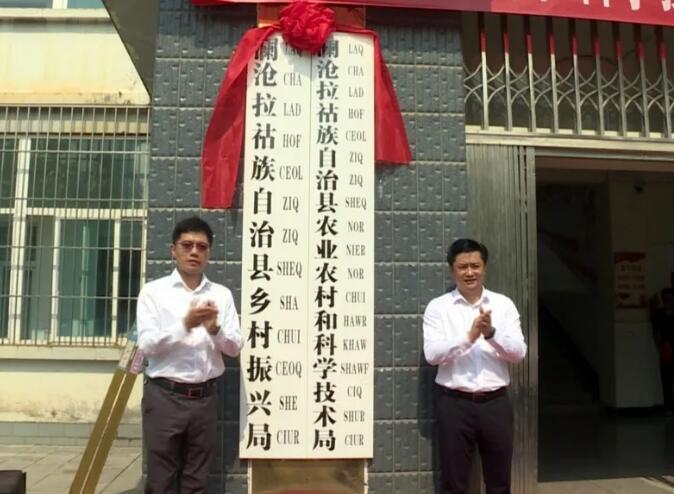 澜沧拉祜族自治县乡村振兴局
LAQ CHA LAD HOF CEOL ZIQ ZIQ SHEQ SHA CHUI CEOQ SHE CIUR
澜沧拉祜族自治县农业农村和科学技术局
LAQ CHA LAD HOF CEOL ZIQ ZIQ SHEQ NOR NIER NOR CHUI HAWR KHAW SHAWF CIQ SHUR CIUR